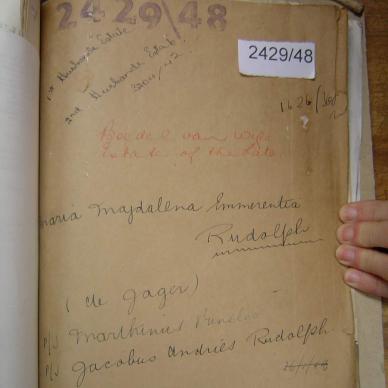 2429\48
2429/48
1st Husbands Estate
2nd Husbands Estate
3204/42.
Boedel van wyle
Estate of the Late
Maria Magdalena Emmerentia
Rudolph
(de Jager)
p/s Marthinus
p/s Jacobus Andries Rudolph.